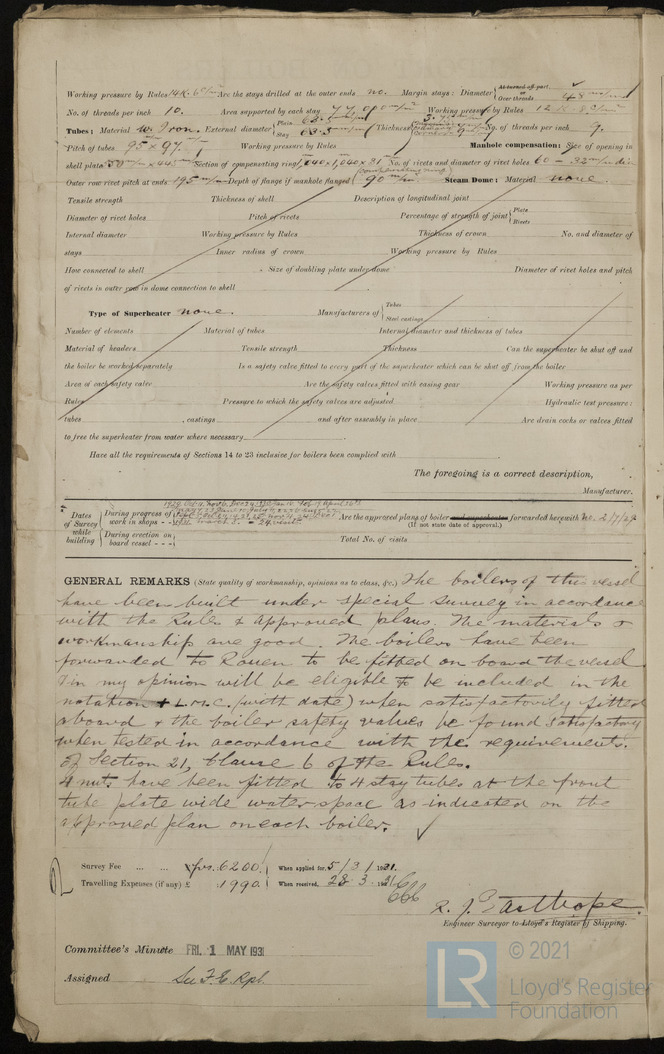 Working pressure by Rules 14 K. 6 c/m² Are the stays drilled at the outer ends no. Margin stays: Diameter { At turned off part or Over threads 48 m/m
No. of threads per inch 10. Area supported by each stay Working pressure by Rules 12 K. 8 c/m²
Tubes: Material w. Iron. External diameter { Plain Stay 63.5 m/m Thickness No. of threads per inch 9.
Pitch of tubes 95 × 97. Working pressure by Rules Manhole compensation: Size of opening in
shell plate 50 m/m × 445 m/m Section of compensating ring 1,040 × 1,040 × 31 No. of rivets and diameter of rivet holes 60 - 32 m/m dia
Outer row rivet pitch at ends 195 m/m Depth of flange if manhole flanged (compensating ring) 90 m/m Steam Dome: Material none.
Tensile strength Thickness of shell Description of longitudinal joint
Diameter of rivet holes Pitch of rivets Percentage of strength of joint { Plate Rivets
Internal diameter Working pressure by Rules Thickness of crown No. and diameter of
stays Inner radius of crown Working pressure by Rules
How connected to shell Size of doubling plate under dome Diameter of rivet holes and pitch
of rivets in outer row in dome connection to shell
Type of Superheater none. Manufacturers of { Tubes Steel castings
Number of elements Material of tubes Internal diameter and thickness of tubes
Material of headers Tensile strength Thickness Can the superheater be shut off and
the boiler be worked separately Is a safety valve fitted to every part of the superheater which can be shut off from the boiler
Area of each safety valve Are the safety valves fitted with easing gear Working pressure as per
Rules Pressure to which the safety valves are adjusted Hydraulic test pressure:
tubes , castings and after assembly in place Are drain cocks or valves fitted
to free the superheater from water where necessary
Have all the requirements of Sections 14 to 23 inclusive for boilers been complied with
The foregoing is a correct description,
Manufacturer.
Dates of Survey while building
During progress of work in shops - - 1931. March 5. - 24 visits
Are the approved plans of boiler and superheater forwarded herewith no. 2/7/29
(If not state date of approval.)
During erection on board vessel - - - Total No. of visits
GENERAL REMARKS (State quality of workmanship, opinions as to class, &c.) The boilers of this vessel
have been built under special survey in accordance
with the Rules & approved plans. The materials &
workmanship are good. The boilers have been
forwarded to Rouen to be fitted on board the vessel
& in my opinion will be eligible to be included in the
notation + L.M.C. (with date) when satisfactorily fitted
aboard & the boiler safety valves be found satisfactory
when tested in accordance with the requirements.
of Section 21, Clause 6 of the Rules.
4 nuts have been fitted to 4 stay tubes at the front
tube plate wide water space as indicated on the
approved plan on each boiler.
Survey Fee ... ... frs. 6200. When applied for, 5/3/1931.
Travelling Expenses (if any) £ 1990. When received, 28.3.1931
R. J. Easthope.
Engineer Surveyor to Lloyd's Register of Shipping.
Committee's Minute FRI. 1 MAY 1931
Assigned See F.E. Rpt.
LR © 2021
Lloyd's Register
Foundation